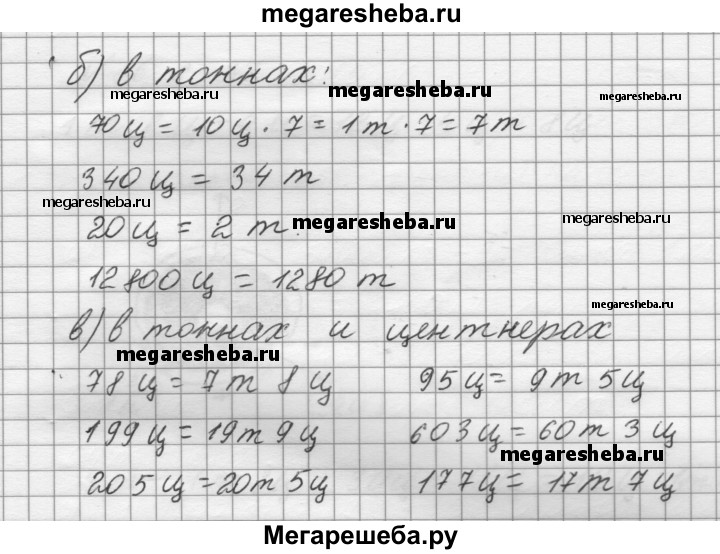 megaresheba.ru
б) в тоннах:
megaresheba.ru megaresheba.ru megaresheba.ru
70 ц = 10 ц · 7 = 1 т · 7 = 7 т
340 ц = 34 т
megaresheba.ru megaresheba.ru megaresheba.ru
20 ц = 2 т.
12800 ц = 1280 т
megaresheba.ru
в) в тоннах и центнерах
megaresheba.ru
78 ц = 7 т 8 ц 95 ц = 9 т 5 ц
199 ц = 19 т 9 ц 603 ц = 60 т 3 ц
megaresheba.ru
205 ц = 20 т 5 ц 177 ц = 17 т 7 ц
Мегарешеба.ру